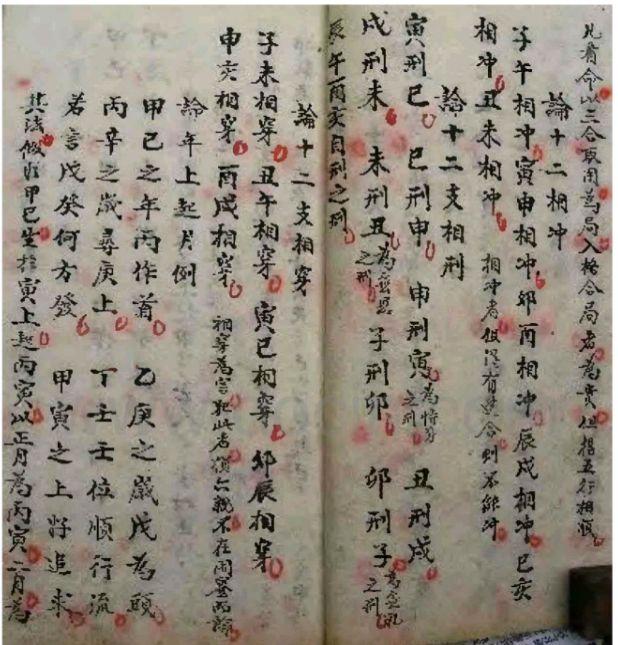 凡看命以三合取用為局入格合局者為貴但五行相順
論十二相冲
子午相冲寅申相冲卯酉相冲辰戌相冲巳亥
相冲丑未相冲 相冲者但有合則不能冲
論十二支相刑
寅刑巳 巳刑申 申刑寅為恃之刑 丑刑戌
戌刑未 未刑丑為之刑 子刑卯 卯刑子為之刑
辰午酉亥自刑之刑
論十二支相穿
子未相穿 丑午相穿 寅巳相穿 卯辰相穿
申亥相穿 酉戌相穿 相穿為害犯此者六親不在
論年上起月例
甲己之年丙作首 乙庚之歲戊為頭
丙辛之歲尋庚上 丁壬壬位順行流
若言戊癸何方發 甲寅之上好追求
其法假如甲己生於寅上起丙寅以正月為丙寅二月為